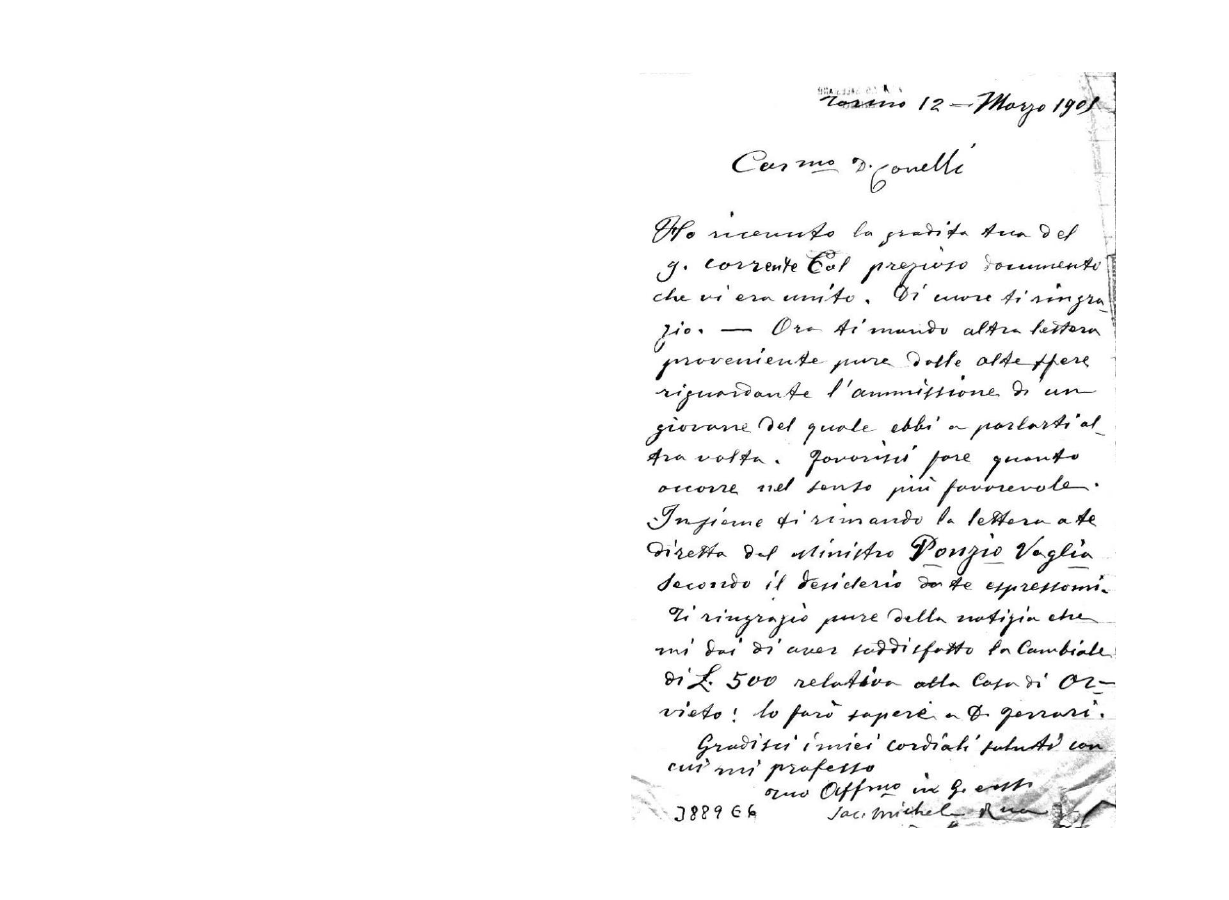 Torino 12 — Marzo 1901
Carmo D. Conelli
Ho ricevuto la gradita tua del
9. corrente Col prezioso documento
che vi era unito. Di cuore ti ringra
zio. — Ora ti mando altra lettera
proveniente pure dalle alte sfere
riguardante l'ammissione di un
giovane del quale ebbi a parlarti al_
tra volta. Favorisci fare quanto
occorre nel senso più favorevole.
Insieme ti rimando la lettera a te
diretta dal Ministro Ponzio Vaglia
secondo il desiderio da te espressomi.
Ti ringrazio pure della notizia che
mi dai di aver soddisfatto la Cambiale
di £. 500 relativa alla Casa di Or—
vieto: lo farò sapere a D. Ferrari.
Gradisci i miei cordiali saluti con
cui mi professo
tuo Affmo in G.
Sac. Michele Rua
3889 E6